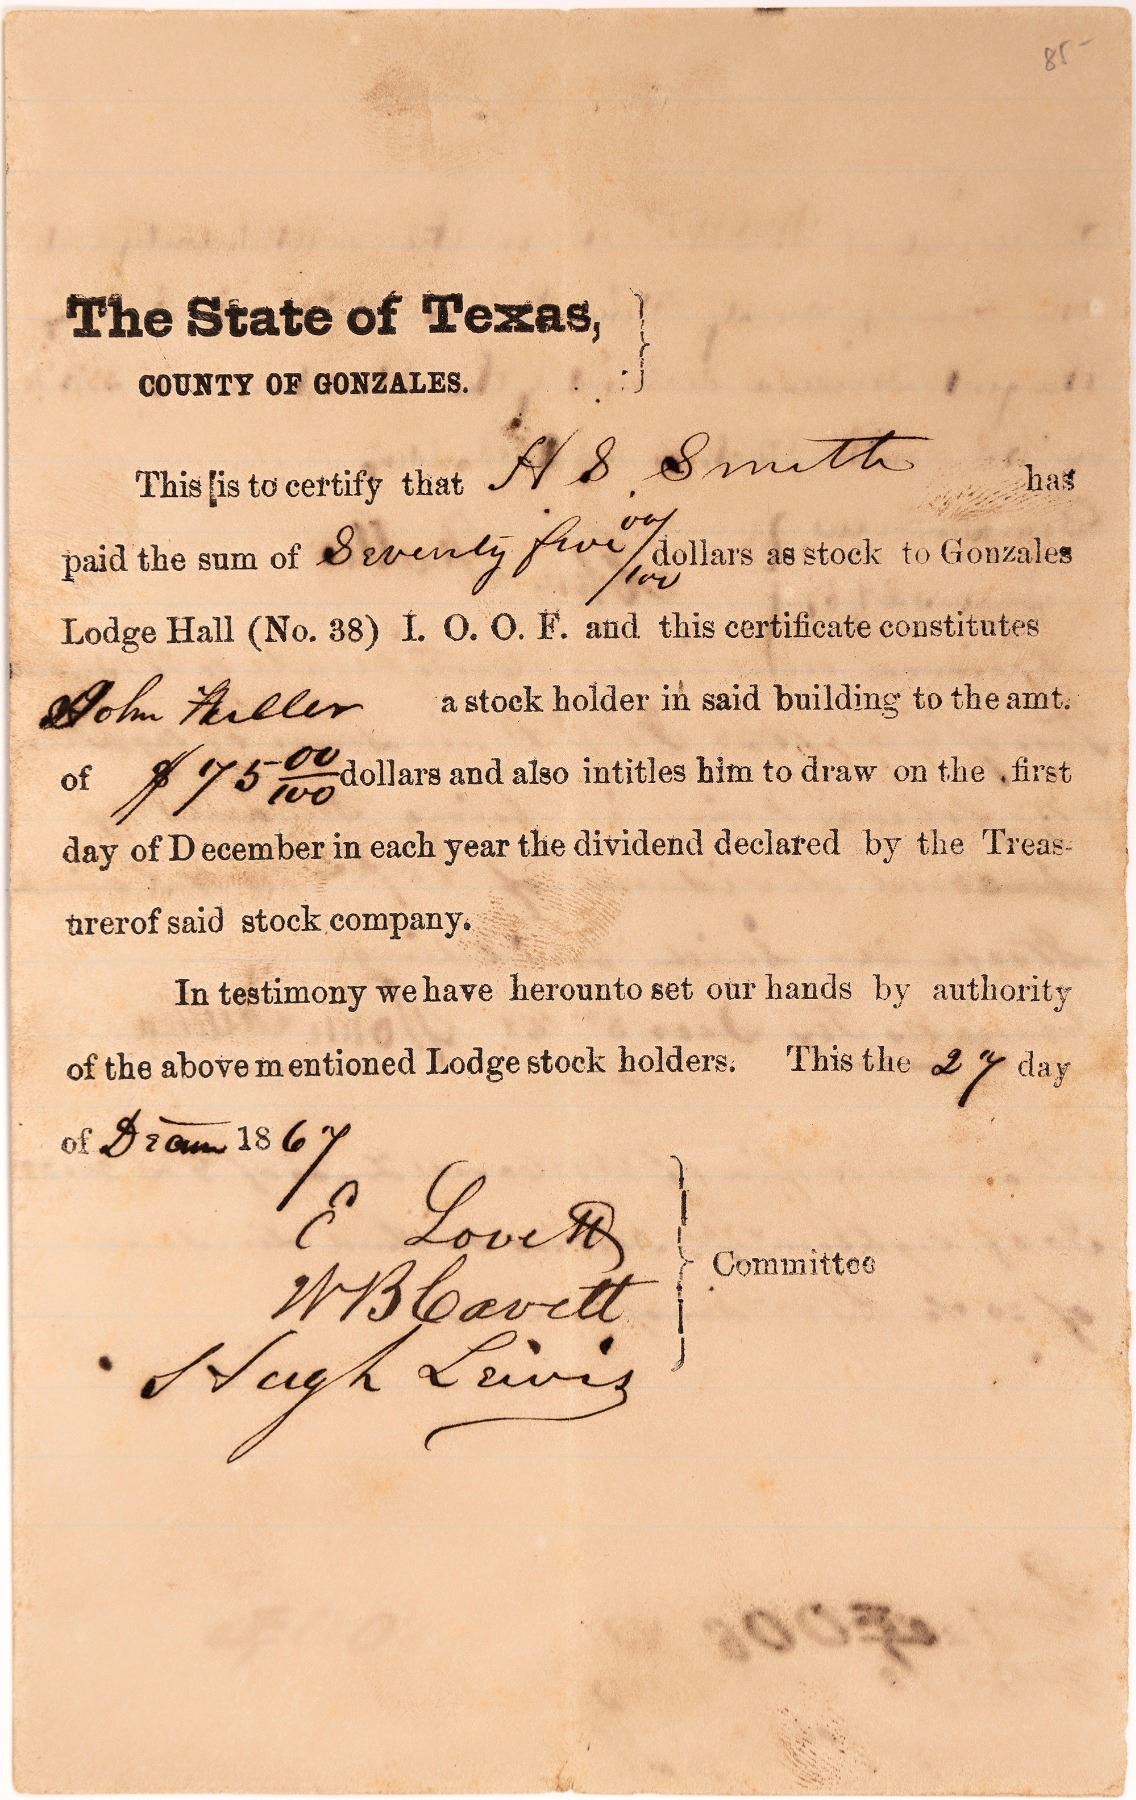 85-
The State of Texas,
COUNTY OF GONZALES.
This is to certify that H S Smith has
paid the sum of Seventy five 00/100 dollars as stock to Gonzales
Lodge Hall (No. 38) I. O. O. F. and this certificate constitutes
John Fuller a stock holder in said building to the amt.
of $75 00/100 dollars and also intitles him to draw on the first
day of December in each year the dividend declared by the Treas-
urerof said stock company.
In testimony we have herounto set our hands by authority
of the above mentioned Lodge stock holders. This the 27 day
of 1867
E Lovett
W B Cavett
Hugh Lewis
Committee